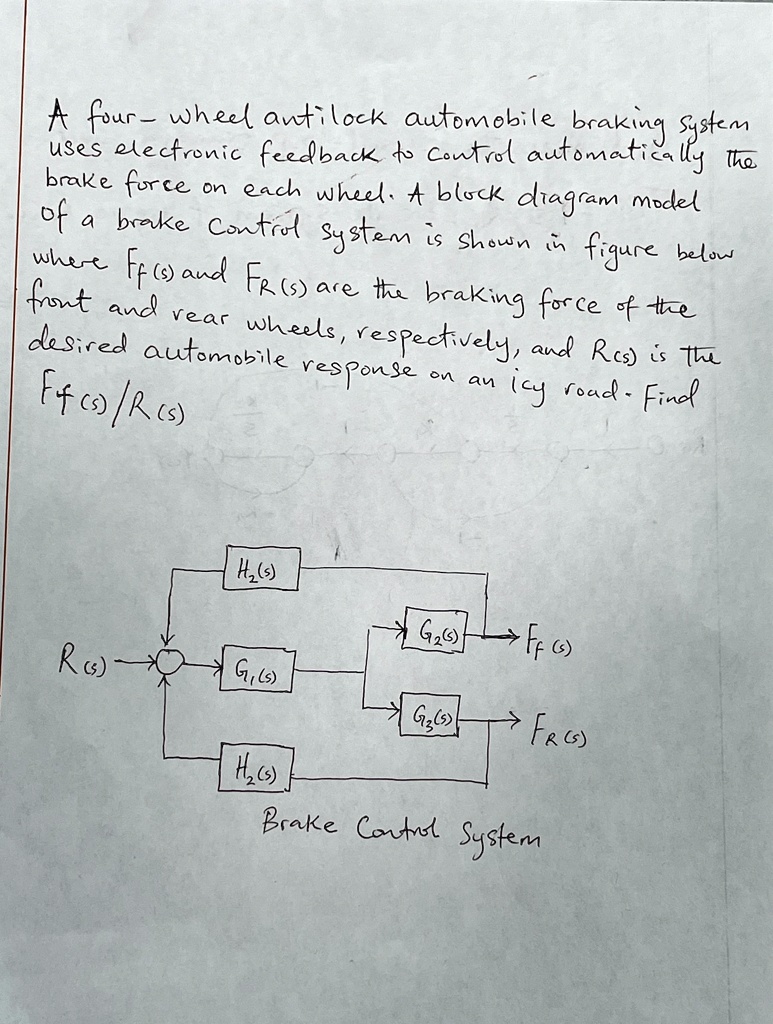 A four-wheel antilock automobile braking system
uses electronic feedback to control automatically the
brake force on each wheel. A block diagram model
of a brake control system is shown in figure below
where Ff(s) and FR(s) are the braking force of the
front and rear wheels, respectively, and R(s) is the
desired automobile response on an icy road. Find
Ff(s)/R(s)
H₂(s)
G₂(s)
Ff(s)
R(s)
G₁(s)
G₃(s)
FR(s)
H₂(s)
Brake Control System